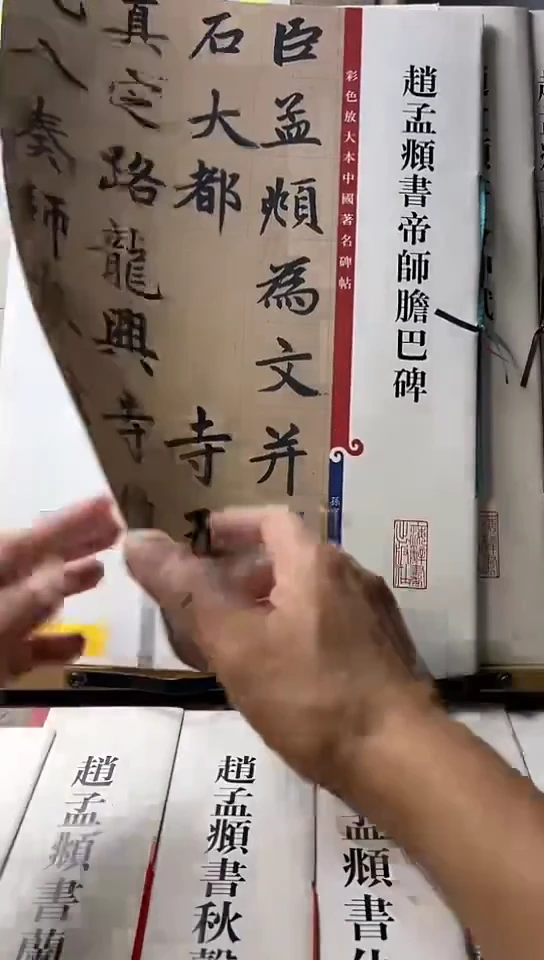 趙孟頫書帝師膽巴碑
彩色放大本中國著名碑帖
孫
臣孟頫為文并
石大都 寺
真定路龍興寺
八奏師
趙孟頫書蘭
趙孟頫書秋
孟頫書